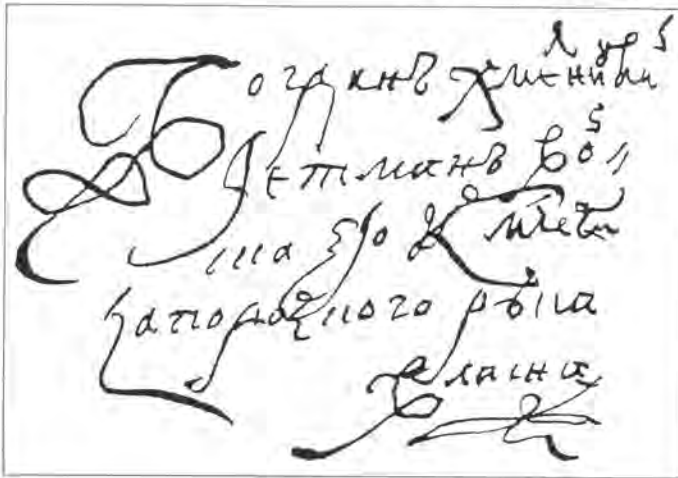 Богданъ Хмелницкий
Гетманъ Вой
ска Его К
Запорозкого рука
власна